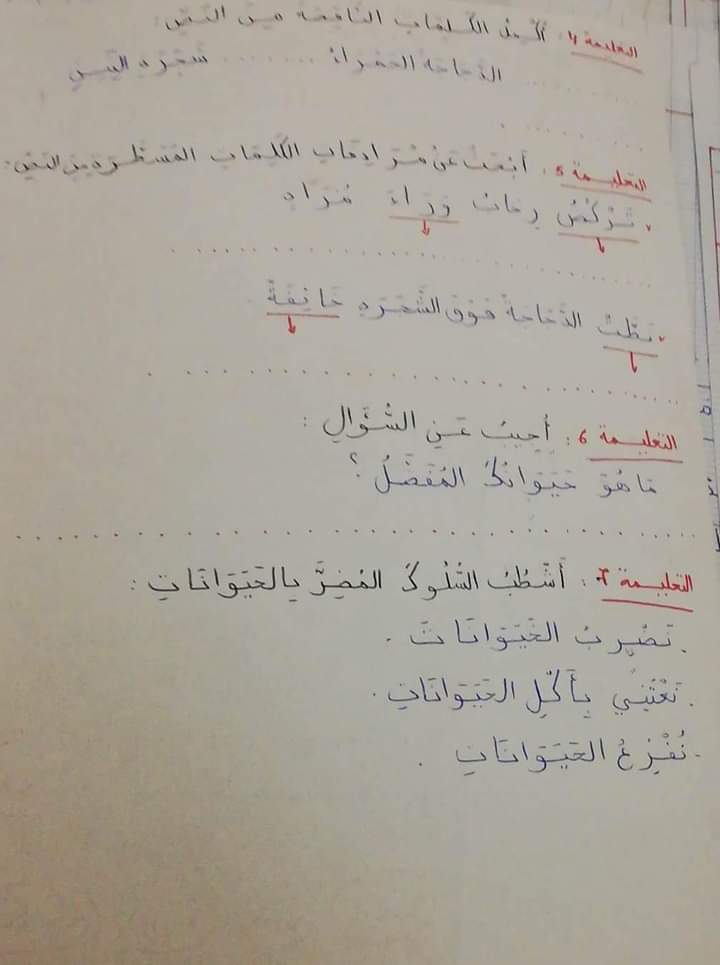 التعليمة 4: أكمل الكلمات الناقصة من النص:
الدجاجة الحمراء ........ شجرة التين
........
التعليمة 5: أبحث عن مرادفات الكلمات المسطرة من النص:
تَرْكُضُ ريحان وَرَاءَ مُرَادٍ
........
نطّت الدّجاجة فوق الشّجرة خائِفَةً
........
التعليمة 6: أُجِيبُ عَنِ السُّؤَالِ:
مَا هُوَ حَيَوَانُكَ المُفَضَّلُ؟
........
التعليمة 7: أَشْطُبُ السُّلُوكَ المُضِرَّ بِالحَيَوَانَاتِ:
. نَضْرِبُ الحَيَوَانَاتَ.
. نَعْتَنِي بِأَكْلِ الحَيَوَانَاتِ.
. نُفْزِعُ الحَيَوَانَاتِ.